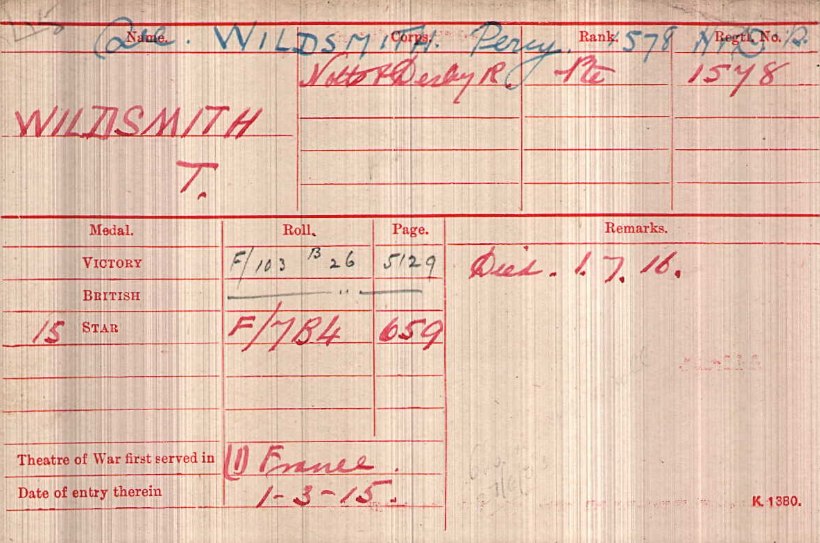 Name. Corps. Rank. Regtl. No.
WILDSMITH. Percy. 1578 N & D R.
Notts & Derby R Pte 1578
WILDSMITH
T.
Medal. Roll. Page. Remarks.
VICTORY F/103 B 26 5129 Died. 1.7.16.
BRITISH — " —
15 STAR F/7B4 659
Theatre of War first served in (1) France.
Date of entry therein 1-3-15.
K. 1380.